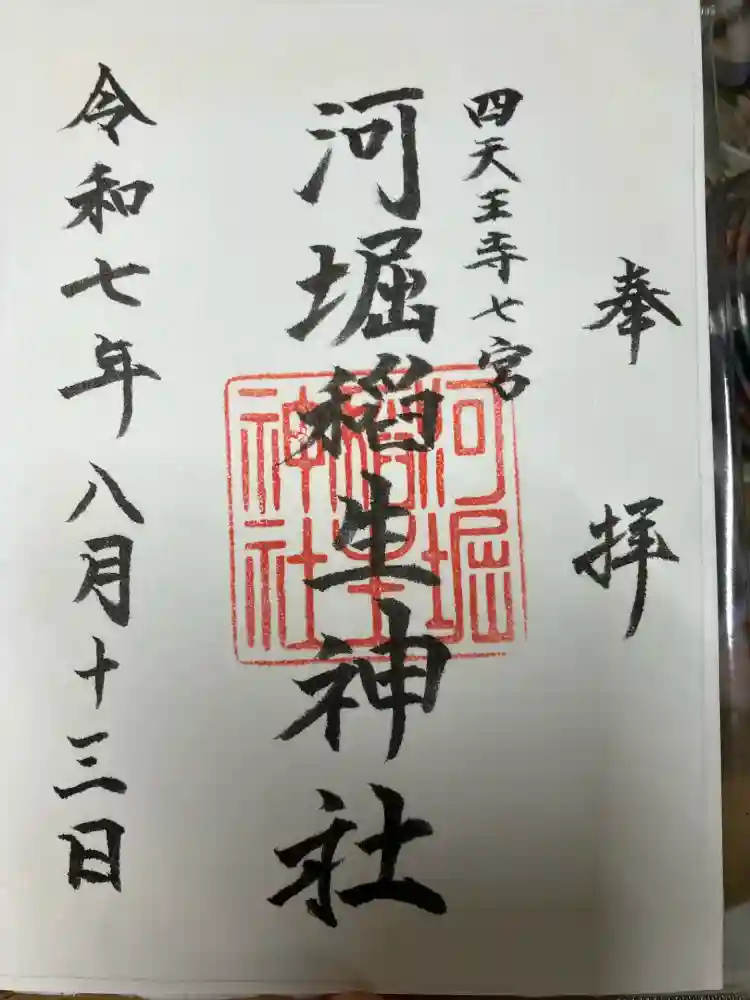 奉拝
四天王寺七宮
河堀稲生神社
河堀
稲生
神社
令和七年八月十三日